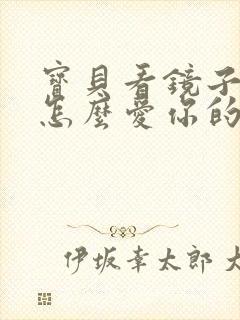 寶貝看鏡子
怎麼愛你的
伊坂幸太郎 大